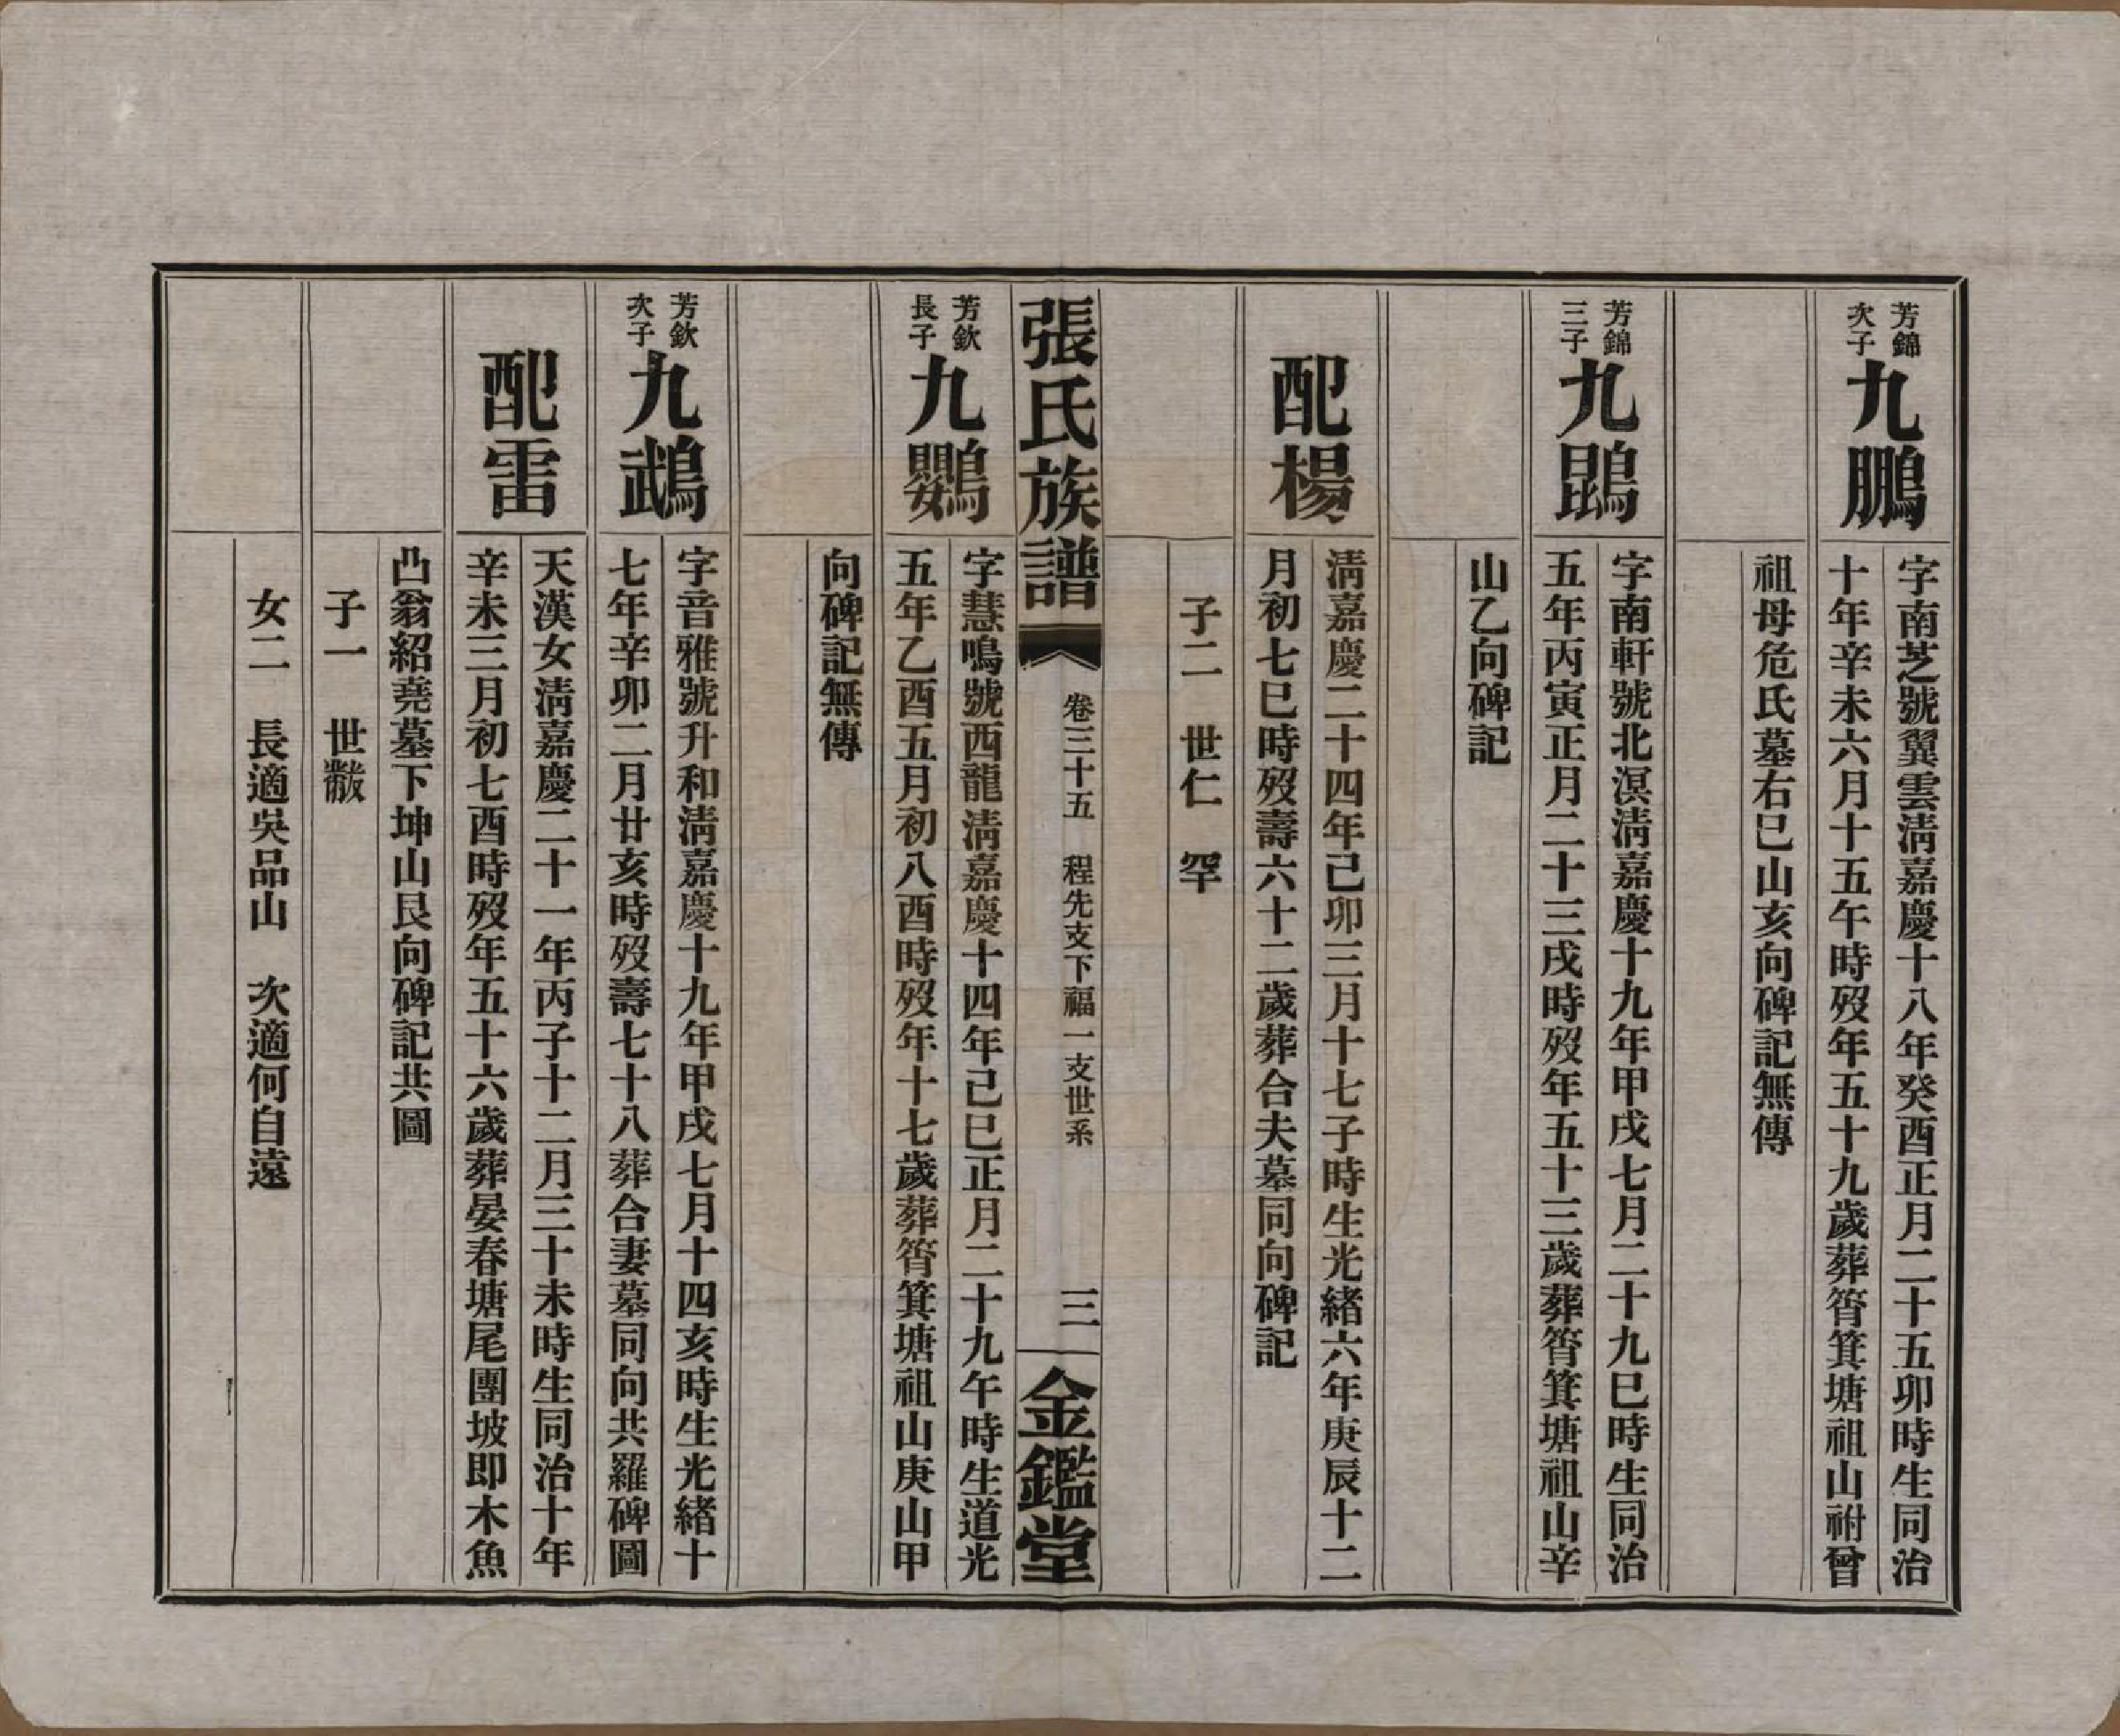 芳錦
次子
九鵬
字南芝號翼雲淸嘉慶十八年癸酉正月二十五卯時生同治
十年辛未六月十五午時歿年五十九歲葬筲箕塘祖山祔曾
祖母危氏墓右巳山亥向碑記無傳
芳錦
三子
九鵾
字南軒號北溟淸嘉慶十九年甲戌七月二十九巳時生同治
五年丙寅正月二十三戌時歿年五十三歲葬筲箕塘祖山辛
山乙向碑記
配楊
淸嘉慶二十四年己卯三月十七子時生光緒六年庚辰十二
月初七巳時歿壽六十二歲葬合夫墓同向碑記
子二 世仁 罕
張氏族譜
卷三十五 程先支下福一支世系
三
金鑑堂
芳欽
長子
九鸚
字慧鳴號西龍淸嘉慶十四年己巳正月二十九午時生道光
五年乙酉五月初八酉時歿年十七歲葬筲箕塘祖山庚山甲
向碑記無傳
芳欽
次子
九鵡
字音雅號升和淸嘉慶十九年甲戌七月十四亥時生光緒十
七年辛卯二月廿亥時歿壽七十八葬合妻墓同向共羅碑圖
配雷
天漢女淸嘉慶二十一年丙子十二月三十未時生同治十年
辛未三月初七酉時歿年五十六歲葬晏春塘尾團坡即木魚
凸翁紹堯墓下坤山艮向碑記共圖
子一 世黻
女二 長適吳品山 次適何自遠